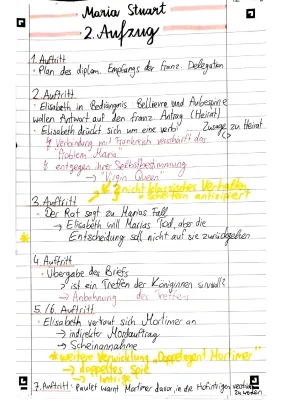 Maria Stuart
2. Aufzug
1. Auftritt
• Plan des diplom. Empfangs der franz. Delegation
2. Auftritt
• Elisabeth in Bedrängnis Bellievre und Aubespine
wollen Antwort auf den franz. Antrag (Heirat)
• Elisabeth drückt sich um eine verbi Zusage zu Heirat
↯ Verbindung mit Frankreich verschärft das
"Problem Maria"
↯ entgegen ihrer Selbstbestimmung
→ "Virgin Queen"
nicht klassisches Verhalten
scheitern antizipiert
3. Auftritt
• Der Rat sagt zu Marias Fall
→ Elisabeth will Marias Tod, aber die
Entscheidung soll nicht auf sie zurückgehen
4. Auftritt
• Übergabe des Briefs
→ ist ein Treffen der Königinnen sinnvoll?
→ Anbahnung des Treffens
5./6. Auftritt
• Elisabeth vertraut sich Mortimer an
→ indirekter Mordauftrag
→ Scheinannahme
* weitere Verwicklung "Doppelagent Mortimer"
→ doppeltes Spiel
→ Intrige
7. Auftritt: Paulet warnt Mortimer davor, in die Hofintrigen
zu werden